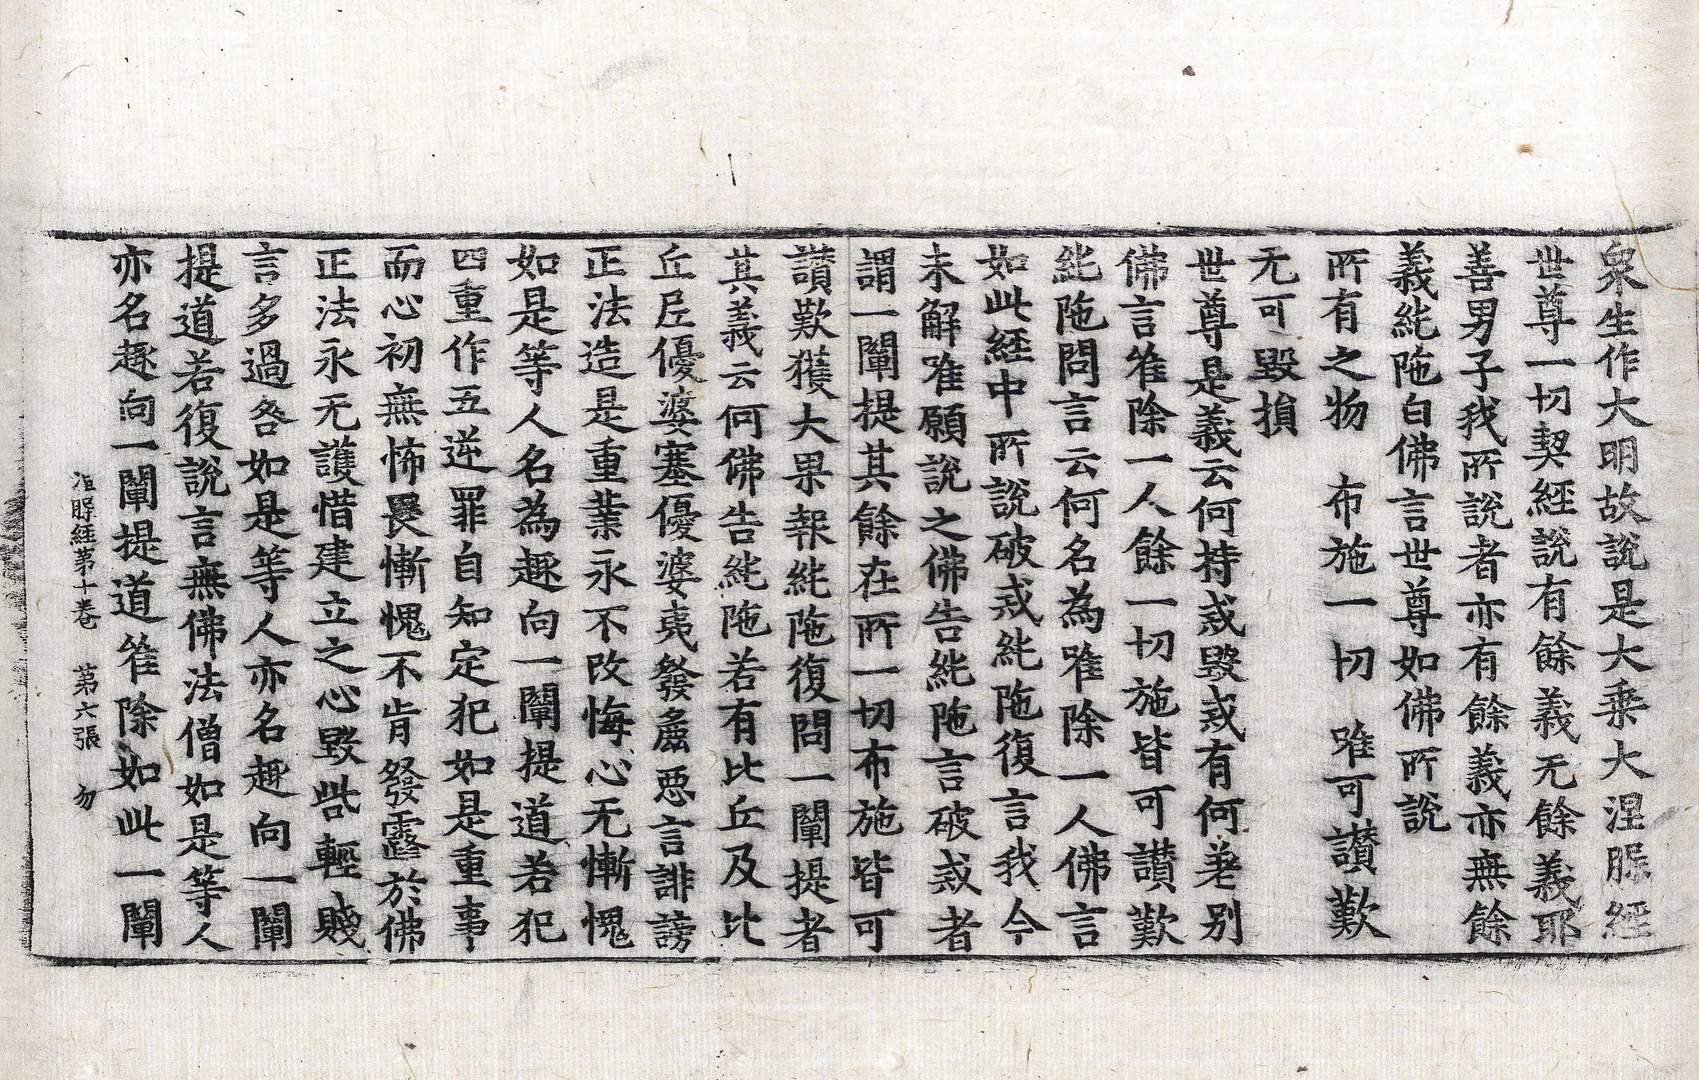 衆生作大明故說是大乗大涅脤經
世尊一切契經說有餘義无餘義耶
善男子我所說者亦有餘義亦無餘
義純陁白佛言世尊如佛所說
所有之物　布施一切　唯可讃歎
无可毀損
世尊是義云何持戒毀戒有何差別
佛言唯除一人餘一切施皆可讃歎
純陁問言云何名為唯除一人佛言
如此經中所說破戒純陁復言我今
未解唯願說之佛告純陁言破戒者
謂一闡提其餘在所一切布施皆可
讃歎獲大果報純陁復問一闡提者
其義云何佛告純陁若有比丘及比
丘尼優婆塞優婆夷發麁惡言誹謗
正法造是重業永不改悔心无慚愧
如是等人名為趣向一闡提道若犯
四重作五逆罪自知定犯如是重事
而心初無怖畏慚愧不肯發露於佛
正法永无護惜建立之心毀呰輕賤
言多過咎如是等人亦名趣向一闡
提道若復說言無佛法僧如是等人
亦名趣向一闡提道唯除如此一闡
涅脤經第十卷　第六張　勿